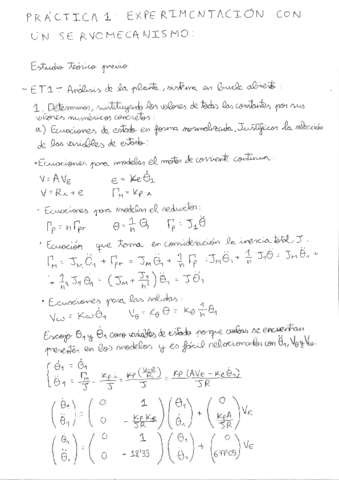 PRÁCTICA 1: EXPERIMENTACIÓN CON
UN SERVOMECANISMO:
Estudio Teórico previo
- ET1 - Análisis de la planta, sistema en bucle abierto:
1. Determinar, sustituyendo los valores de todas las constantes por sus
valores numéricos concretos:
a) Ecuaciones de estado en forma normalizada. Justificar la elección
de las variables de estado:
• Ecuaciones para modelar el motor de corriente continua:
V = AVE e = Ke θ̇1
V = Ri + e ΓM = Kp i
• Ecuaciones para modelar el reductor:
Γp = n Γpr θ = 1/n θ1 Γp = J1 θ̈
• Ecuación que toma en consideración la inercia total J.
ΓM = JM θ̈1 + Γpr = JM θ̈1 + 1/n Γp = JM θ̈1 + 1/n J1 θ̈ = JM θ̈1 +
+ 1/n² J1 θ̈1 = (JM + J1/n²) θ̈1 = J θ̈1
• Ecuaciones para las salidas:
Vω = Kω θ̇1 Vθ = Kθ θ = Kθ 1/n θ1
Escojo θ1 y θ̇1 como variables de estado porque ambas se encuentran
presentes en los modelos y es fácil relacionarlas con
{ θ̇1 = θ̇1
θ̈1 = ΓM/J = Kp i/J = Kp (V-e/R)/J = Kp (AVE - Ke θ̇1)/JR
(θ̇1 θ̈1) = (0 1 0 - Kp Ke/JR) (θ1 θ̇1) + (0 KpA/JR) VE
(θ̇1 θ̈1) = (0 1 0 -18'35) (θ1 θ̇1) + (0 ) VE